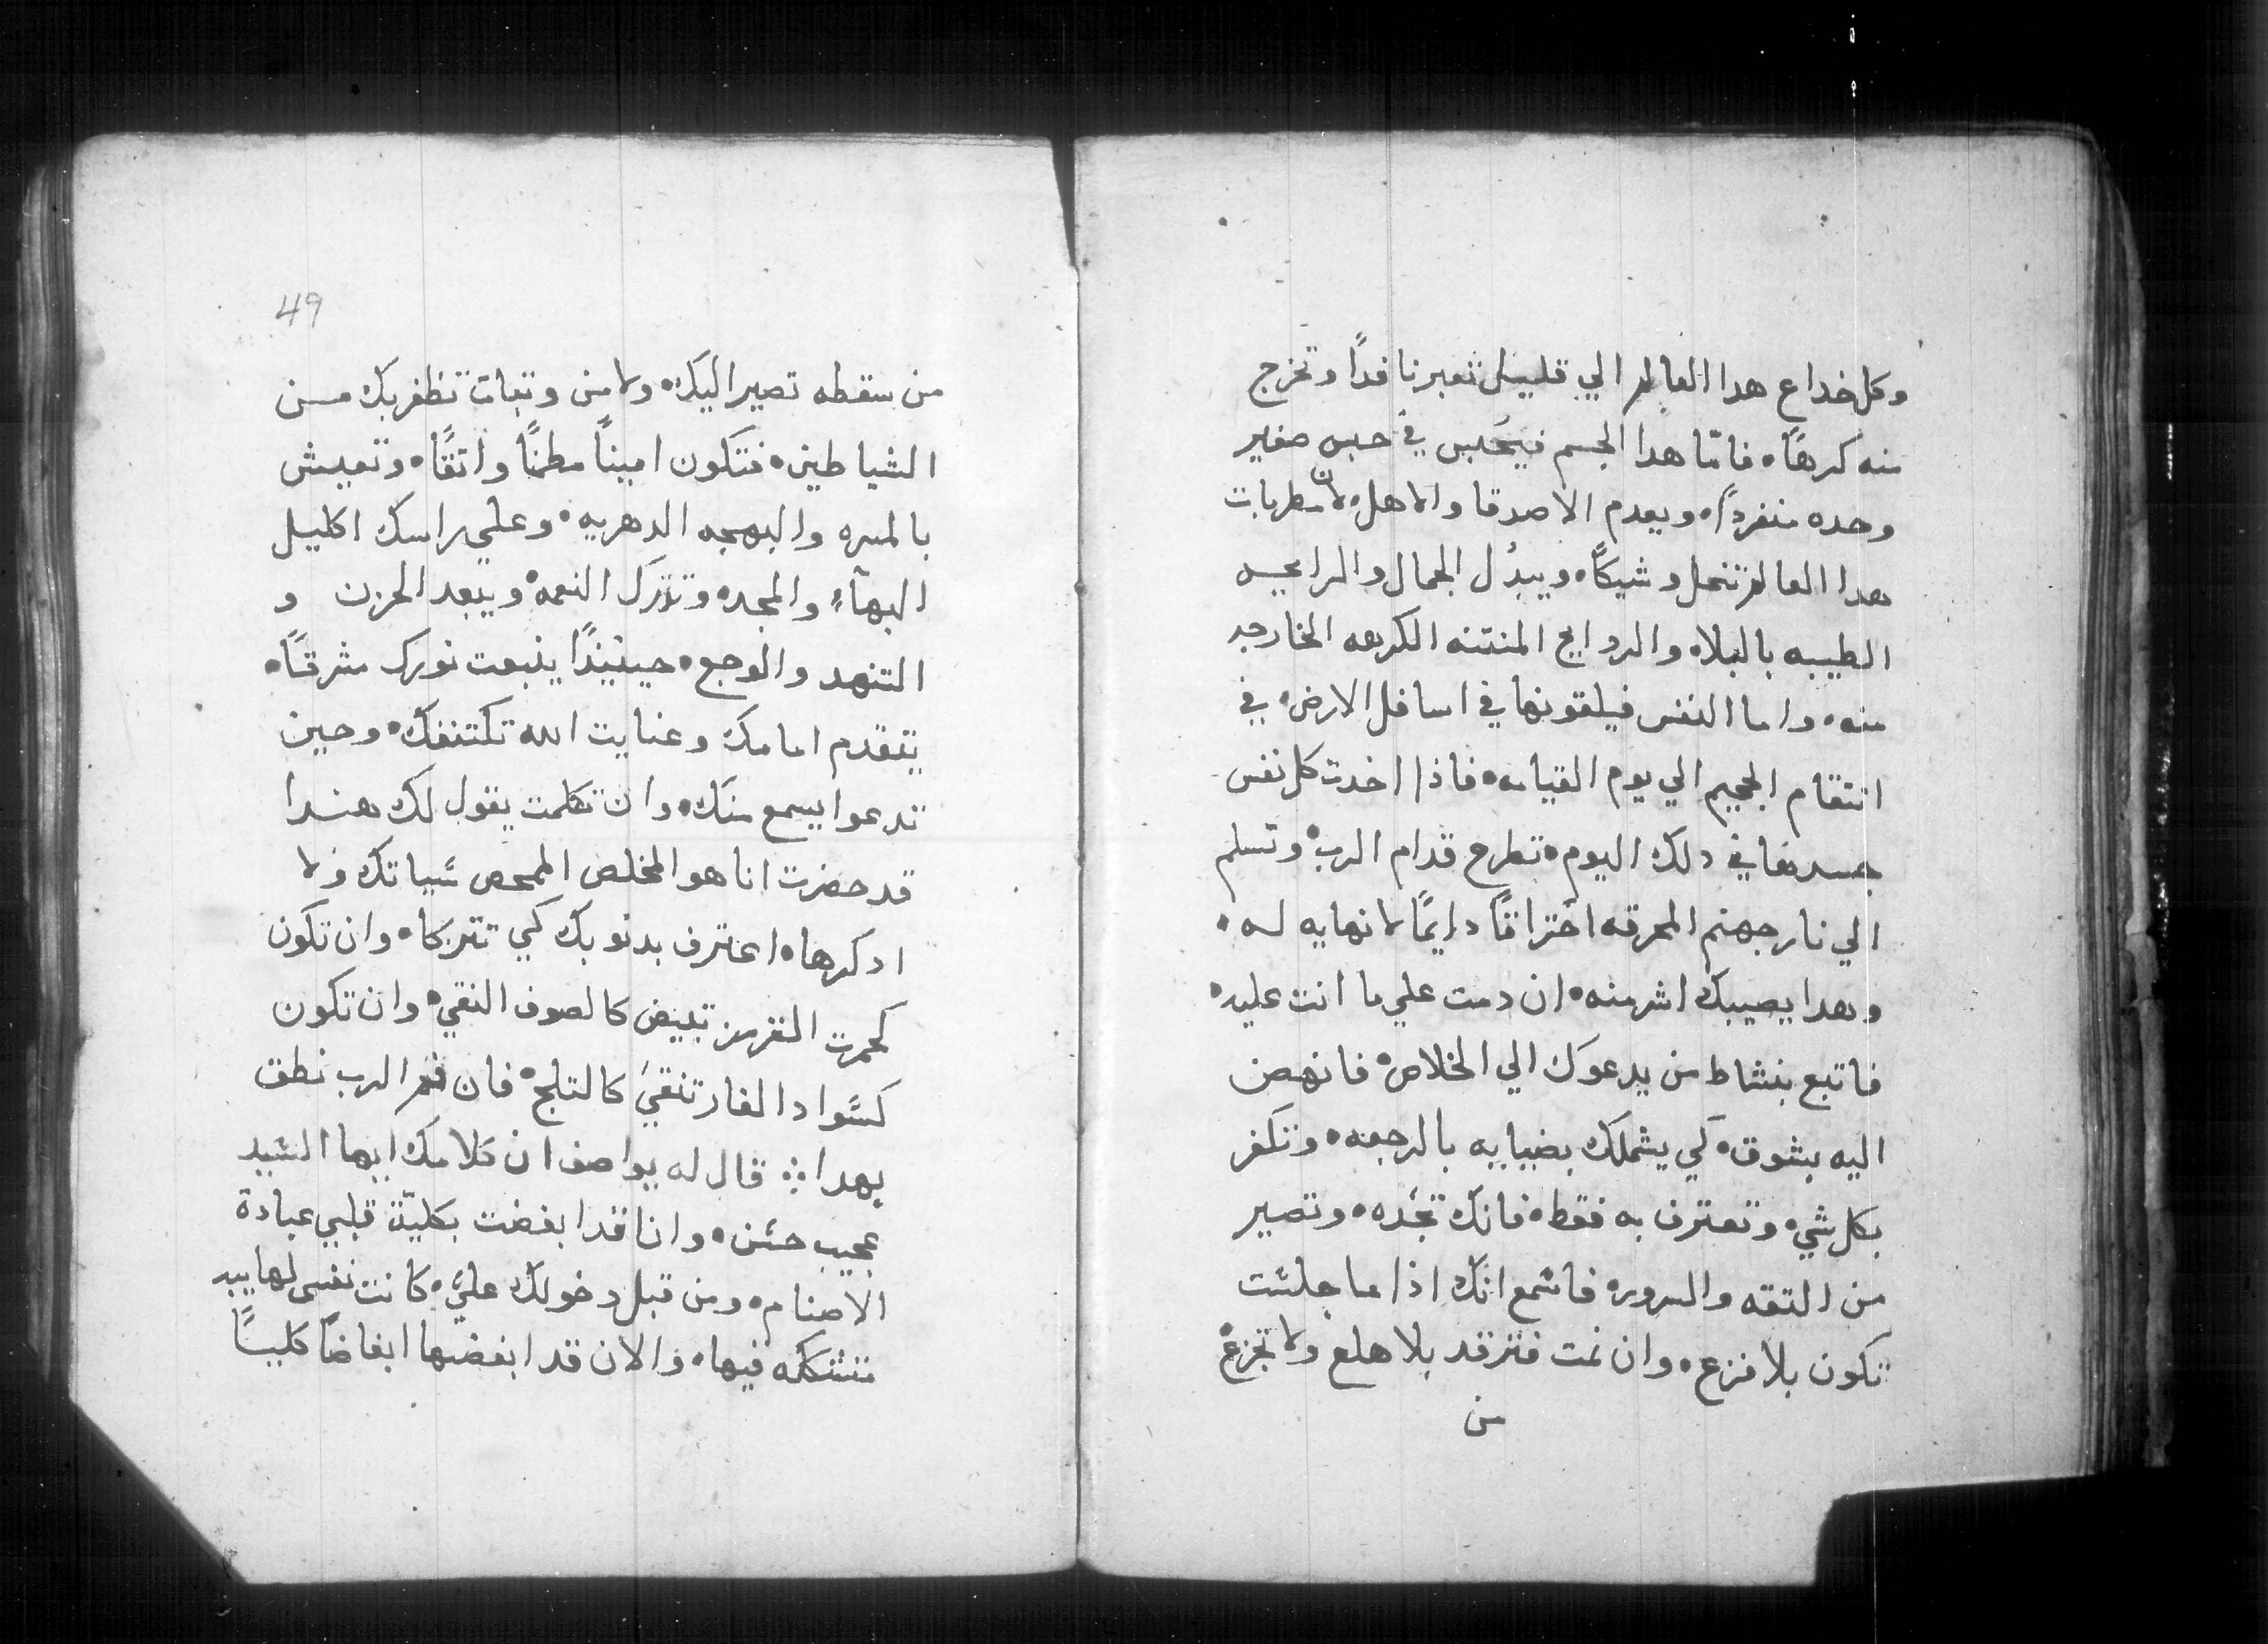 وكل خداع هدا العالم الي قليل تعبر نافداً وتخرج
منه كرهاً، فامّا هدا الجسم فيحَبس في حبس صغير
وحده منفرداً، ويعدم الاصدقا والاهل، لان مطربات
هدا العالم تنحل وشيكاً، ويبدُل الجمال والرايحه
الطيبه بالبلا، والروايح المنتنه الكرهه الخارجه
منه، واما النفس فيلقونها في اسافل الارض، في
انتقام الجحيم الي يوم القيامه، فاذا اخدت كل نفس
جسدها في دلك اليوم، تطرح قدام الرب، وتسلم
الي نار جهنم المحرقه احتراقاً دايمًا لا نهايه له،
وهدا يصيبك اشر منه، ان دمت علي ما انت عليه،
فاتبع بنشاط من يدعوك الي الخلاص، فانهض
اليه بشوق، كي يشملك بضيايه بالرجعه، وتكفر
بكل شي، وتعترف به فقط، فانك تجده، وتصير
من التقه والسرور، فاسمع انك اذا ما جلست
تكون بلا فزع، وان نمت فترقد بلا هلع ولا تجزع،
من
49
من سقطه تصير اليك، ولا من وتبات تظفر بك من
الشياطين، فتكون اميناً مطمنًا واتقًا، وتعيش
بالمسره والبهجه الدهريه، وعلي راسك اكليل
البهآء والمجد، وتترك النعمه، ويبعد الحزن و
التنهد والوجع، حينيندًا ينبعت نورك مشرقاً،
يتقدم امامك وعنايت الله تكتنفك، وحين
تدعوا يسمع منك، وان تكلمت يقول لك هندا
قد حضرت انا هو المخلص الممحص سياتك ولا
ادكرها، اعترف بدنوبك كي تتزكا، وان تكون
كحمرت القرمز تبيض كالصوف النقي، وان تكون
كسواد الغار تنقيَ كالتلج، فان فم الرب نطق
بهدا ⁘ قال له يواصف ان كلامك ايها السيد
عجيب حسن، وانا قد ابغضت بكليّة قلبي عبادة
الاصنام، ومن قبل دخولك عليَّ، كانت نفسي لها بيد
متشككه فيها، والان قد ابغضها ابغاضاً كلياً